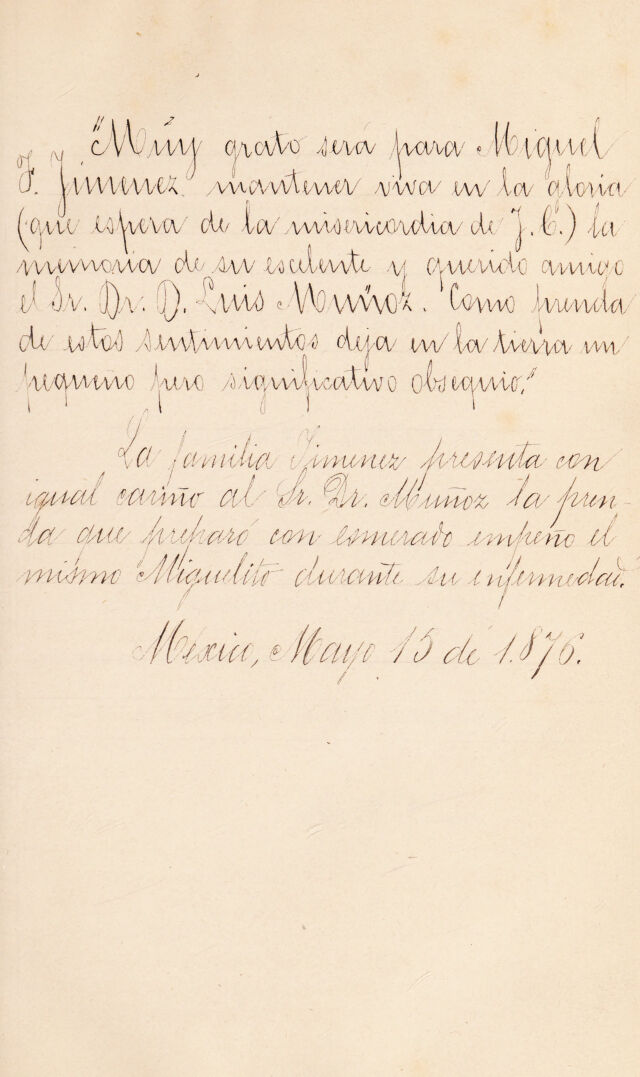 "Múy grato será para Miguel
F. Jimenez mantener viva en la gloria
(que espera de la misericordia de J. C.) la
memoria de su escelente y querido amigo
el Sr. Dr. D. Luis Muñoz. Como prenda
de estos sentimientos deja en la tierra un
pequeño pero significativo obsequio."
La familia Jimenez presenta con
igual cariño al Sr. Dr. Muñoz la pren-
da que preparó con esmerado empeño el
mismo Miguelito durante su enfermedad.
México, Mayo 15 de 1.876.